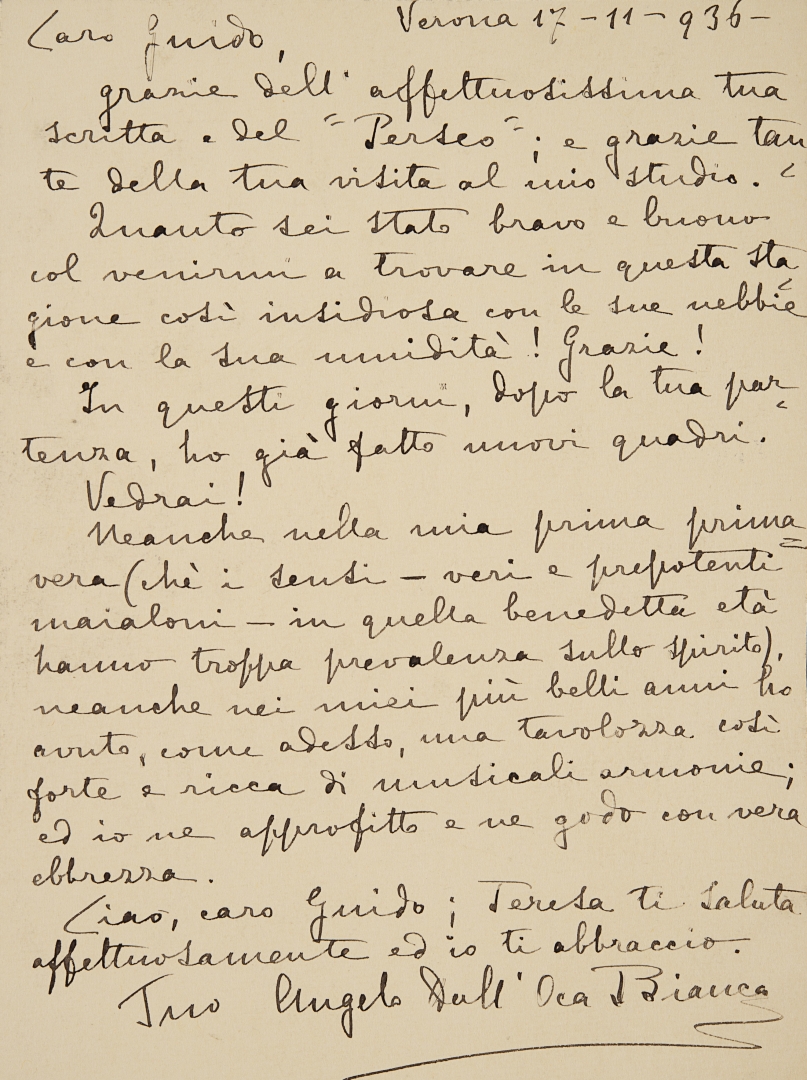 Verona 17-11-936-
Caro Guido,
grazie dell' affettuosissima tua
scritta e del "Perseo"; e grazie tan
te della tua visita al mio studio.
Quanto sei stato bravo e buono
col venirmi a trovare in questa sta
gione così insidiosa con le sue nebbie
e con la sua umidità! Grazie!
In questi giorni, dopo la tua par-
tenza, ho già fatto nuovi quadri.
Vedrai!
Neanche nella mia prima prima=
vera (chè i sensi - veri e prepotenti
maialoni - in quella benedetta età
hanno troppa prevalenza sullo spirito),
neanche nei miei più belli anni ho
avuto, come adesso, una tavolozza così
forte e ricca di musicali armonie;
ed io ne approfitto e ne godo con vera
ebbrezza.
Ciao, caro Guido; Teresa ti saluta
affettuosamente ed io ti abbraccio.
Tuo Angelo Dall'Oca Bianca